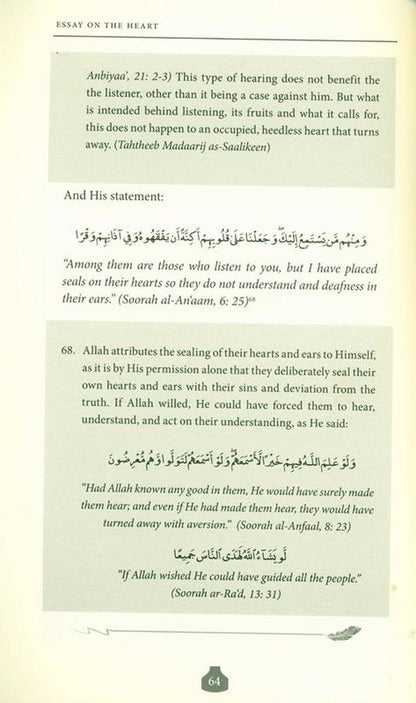 ESSAY ON THE HEART
Anbiyaa', 21: 2-3) This type of hearing does not benefit the
the listener, other than it being a case against him. But what
is intended behind listening, its fruits and what it calls for,
this does not happen to an occupied, heedless heart that turns
away. (Tahtheeb Madaarij as-Saalikeen)
And His statement:
وَمِنْهُم مَّن يَسْتَمِعُ إِلَيْكَ ۖ وَجَعَلْنَا عَلَىٰ قُلُوبِهِمْ أَكِنَّةً أَن يَفْقَهُوهُ وَفِي آذَانِهِمْ وَقْرًا
“Among them are those who listen to you, but I have placed
seals on their hearts so they do not understand and deafness in
their ears.” (Soorah al-An'aam, 6: 25)⁶⁸
68. Allah attributes the sealing of their hearts and ears to Himself,
as it is by His permission alone that they deliberately seal their
own hearts and ears with their sins and deviation from the
truth. If Allah willed, He could have forced them to hear,
understand, and act on their understanding, as He said:
وَلَوْ عَلِمَ اللَّهُ فِيهِمْ خَيْرًا لَّأَسْمَعَهُمْ ۖ وَلَوْ أَسْمَعَهُمْ لَتَوَلَّوا وَّهُم مُّعْرِضُونَ
“Had Allah known any good in them, He would have surely made
them hear; and even if He had made them hear, they would have
turned away with aversion.” (Soorah al-Anfaal, 8: 23)
لَّوْ يَشَاءُ اللَّهُ لَهَدَى النَّاسَ جَمِيعًا
“If Allah wished He could have guided all the people.”
(Soorah ar-Ra'd, 13: 31)
64